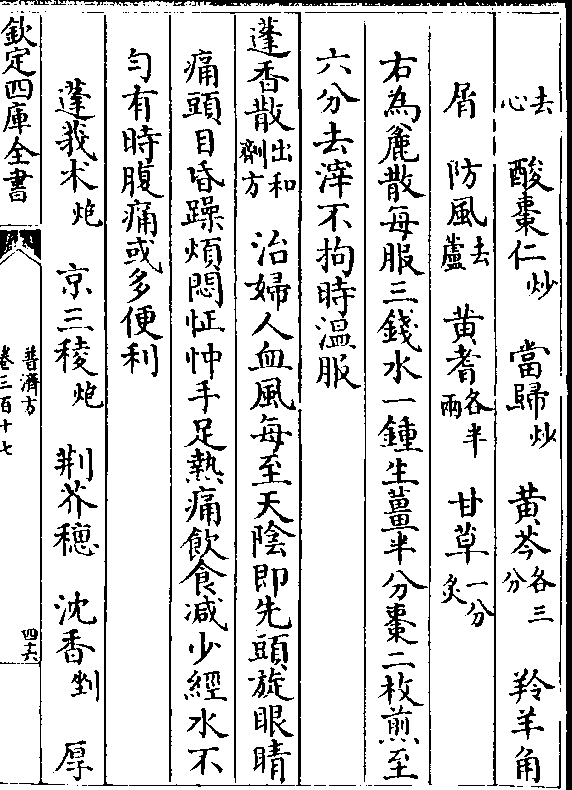 去心　酸棗仁炒　當歸炒　黄芩各三分　羚羊角
屑　防風去蘆　黄耆各半兩　甘草一分炙
右為麄散每服三錢水一鍾生薑半分棗二枚煎至
六分去滓不拘時溫服
蓬香散出和劑方　治婦人血風每至天陰即先頭旋眼睛
痛頭目昏躁煩悶怔忡手足熱痛飲食减少經水不
勻有時腹痛或多便利
蓬莪术炮　京三稜炮　荆芥穗　沈香剉　厚
欽定四庫全書
普濟方
卷三百十七
四十六